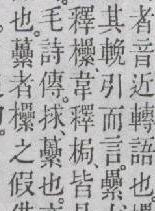 者音近轉語也
其輓引而言。纍
釋欙韋釋梮皆
毛詩傳。捄、虆也。
也。虆者欙之假